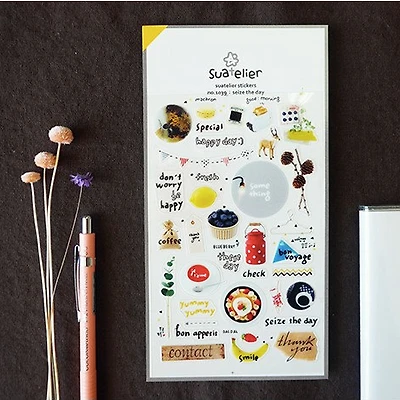 Suatelier
suatelier stickers
no.1039 : seize the day
good morning
special
happy day :)
fresh
don't
worry
be
happy
some
thing
coffee
BLUEBERRY
these
day
bon
voyage
check
yummy
yummy
seize the day
bon appetit
contact
smile
thank
you